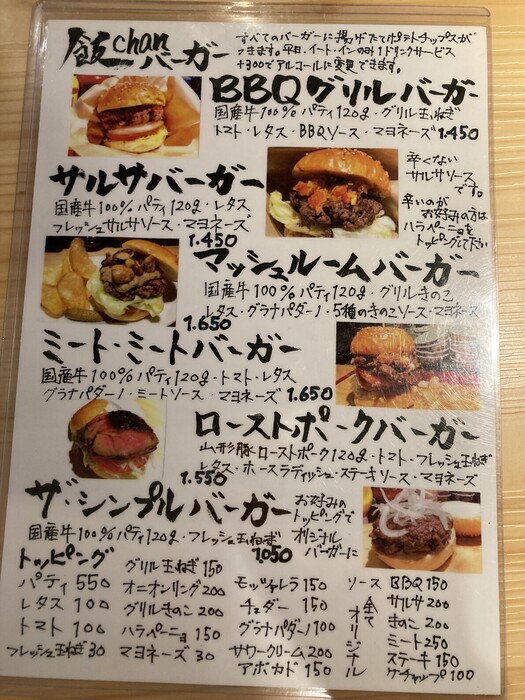 飯chanバーガー
すべてのバーガーに揚げたてポテトチップスが
つきます。平日、イート・インのみ1ドリンクサービス
+300でアルコールに変更できます。
BBQグリルバーガー
国産牛100%パティ120g・グリル玉ねぎ
トマト・レタス・BBQソース・マヨネーズ 1.450
サルサバーガー
国産牛100%パティ120g・レタス
フレッシュサルサソース・マヨネーズ
1.450
辛くない
サルサソース
です。
辛いのが
お好みの方は
ハラペーニョを
トッピングして下さい
マッシュルームバーガー
国産牛100%パティ120g・グリルきのこ
レタス・グラナパダーノ・5種のきのこソース・マヨネーズ
1.650
ミート・ミートバーガー
国産牛100%パティ120g・トマト・レタス
グラナパダーノ・ミートソース・マヨネーズ 1.650
ローストポークバーガー
山形豚ローストポーク120g・トマト・フレッシュ玉ねぎ
レタス・ホースラディッシュ・ステーキソース・マヨネーズ
1.550
ザ・シンプルバーガー
国産牛100%パティ120g・フレッシュ玉ねぎ
1.050
お好みの
トッピングで
オリジナル
バーガーに
トッピング
パティ 550
レタス 100
トマト 100
フレッシュ玉ねぎ 30
グリル玉ねぎ 150
オニオンリング 200
グリルきのこ 200
ハラペーニョ 150
マヨネーズ 30
モッツァレラ 150
チェダー 150
グラナパダーノ 100
サワークリーム 200
アボカド 150
ソース
全てオリジナル
BBQ 150
サルサ 200
きのこ 200
ミート 250
ステーキ 150
ケチャップ 100